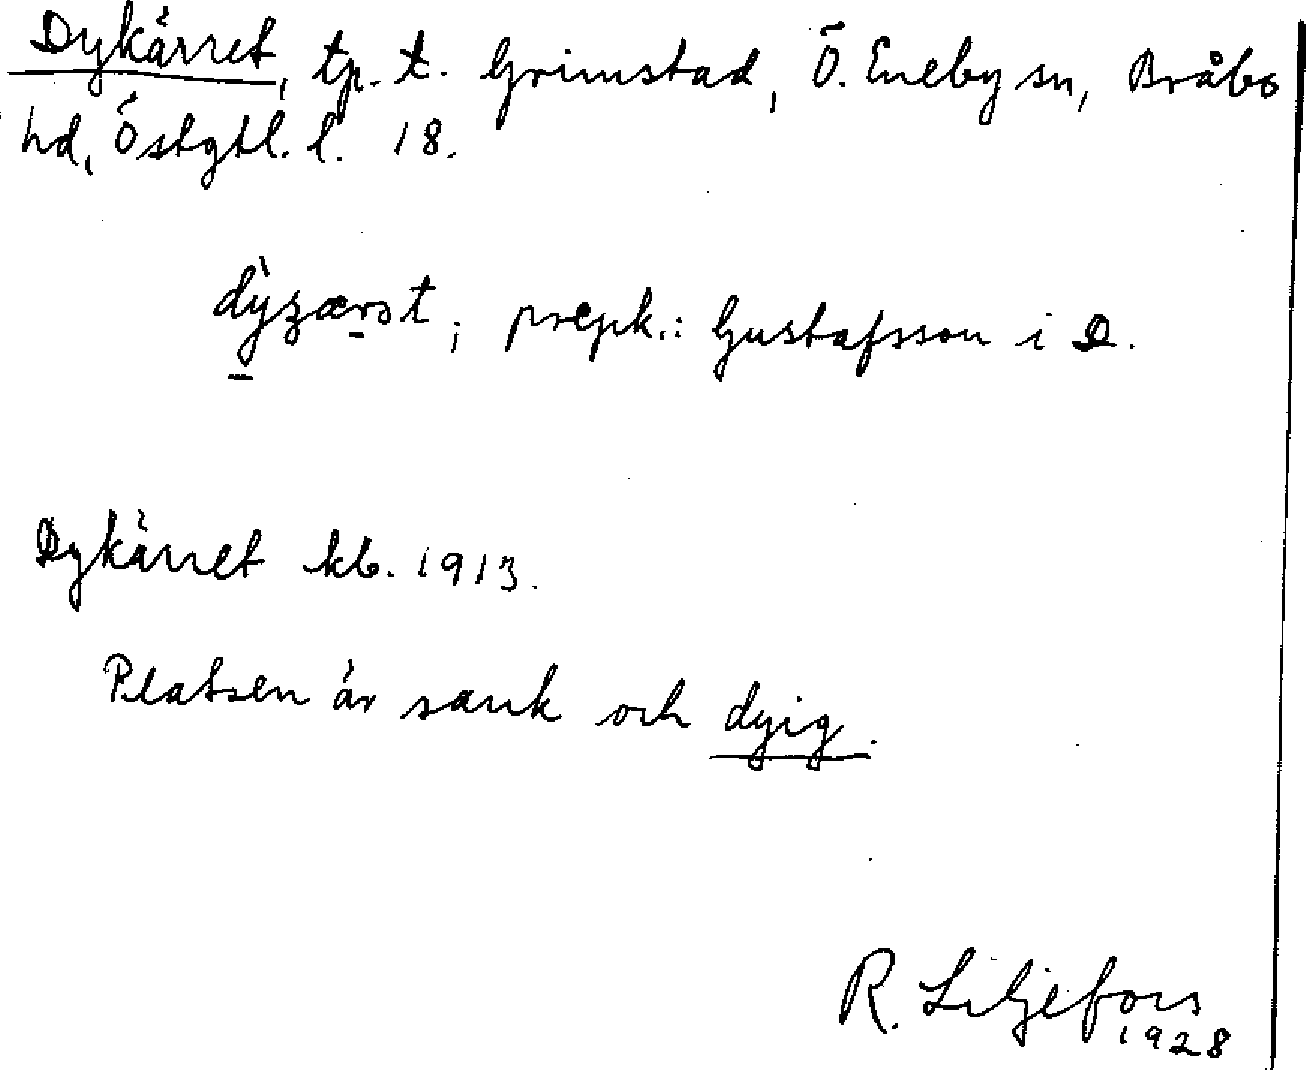 Dykärret, tp. t. Grimstad, Ö. Eneby sn, Bråbo
hd, Östgtl. l. 18.
prepk.: Gustafsson i D.
Dykärret kb. 1913.
Platsen är sank och dyig.
R. Liljefors
1928